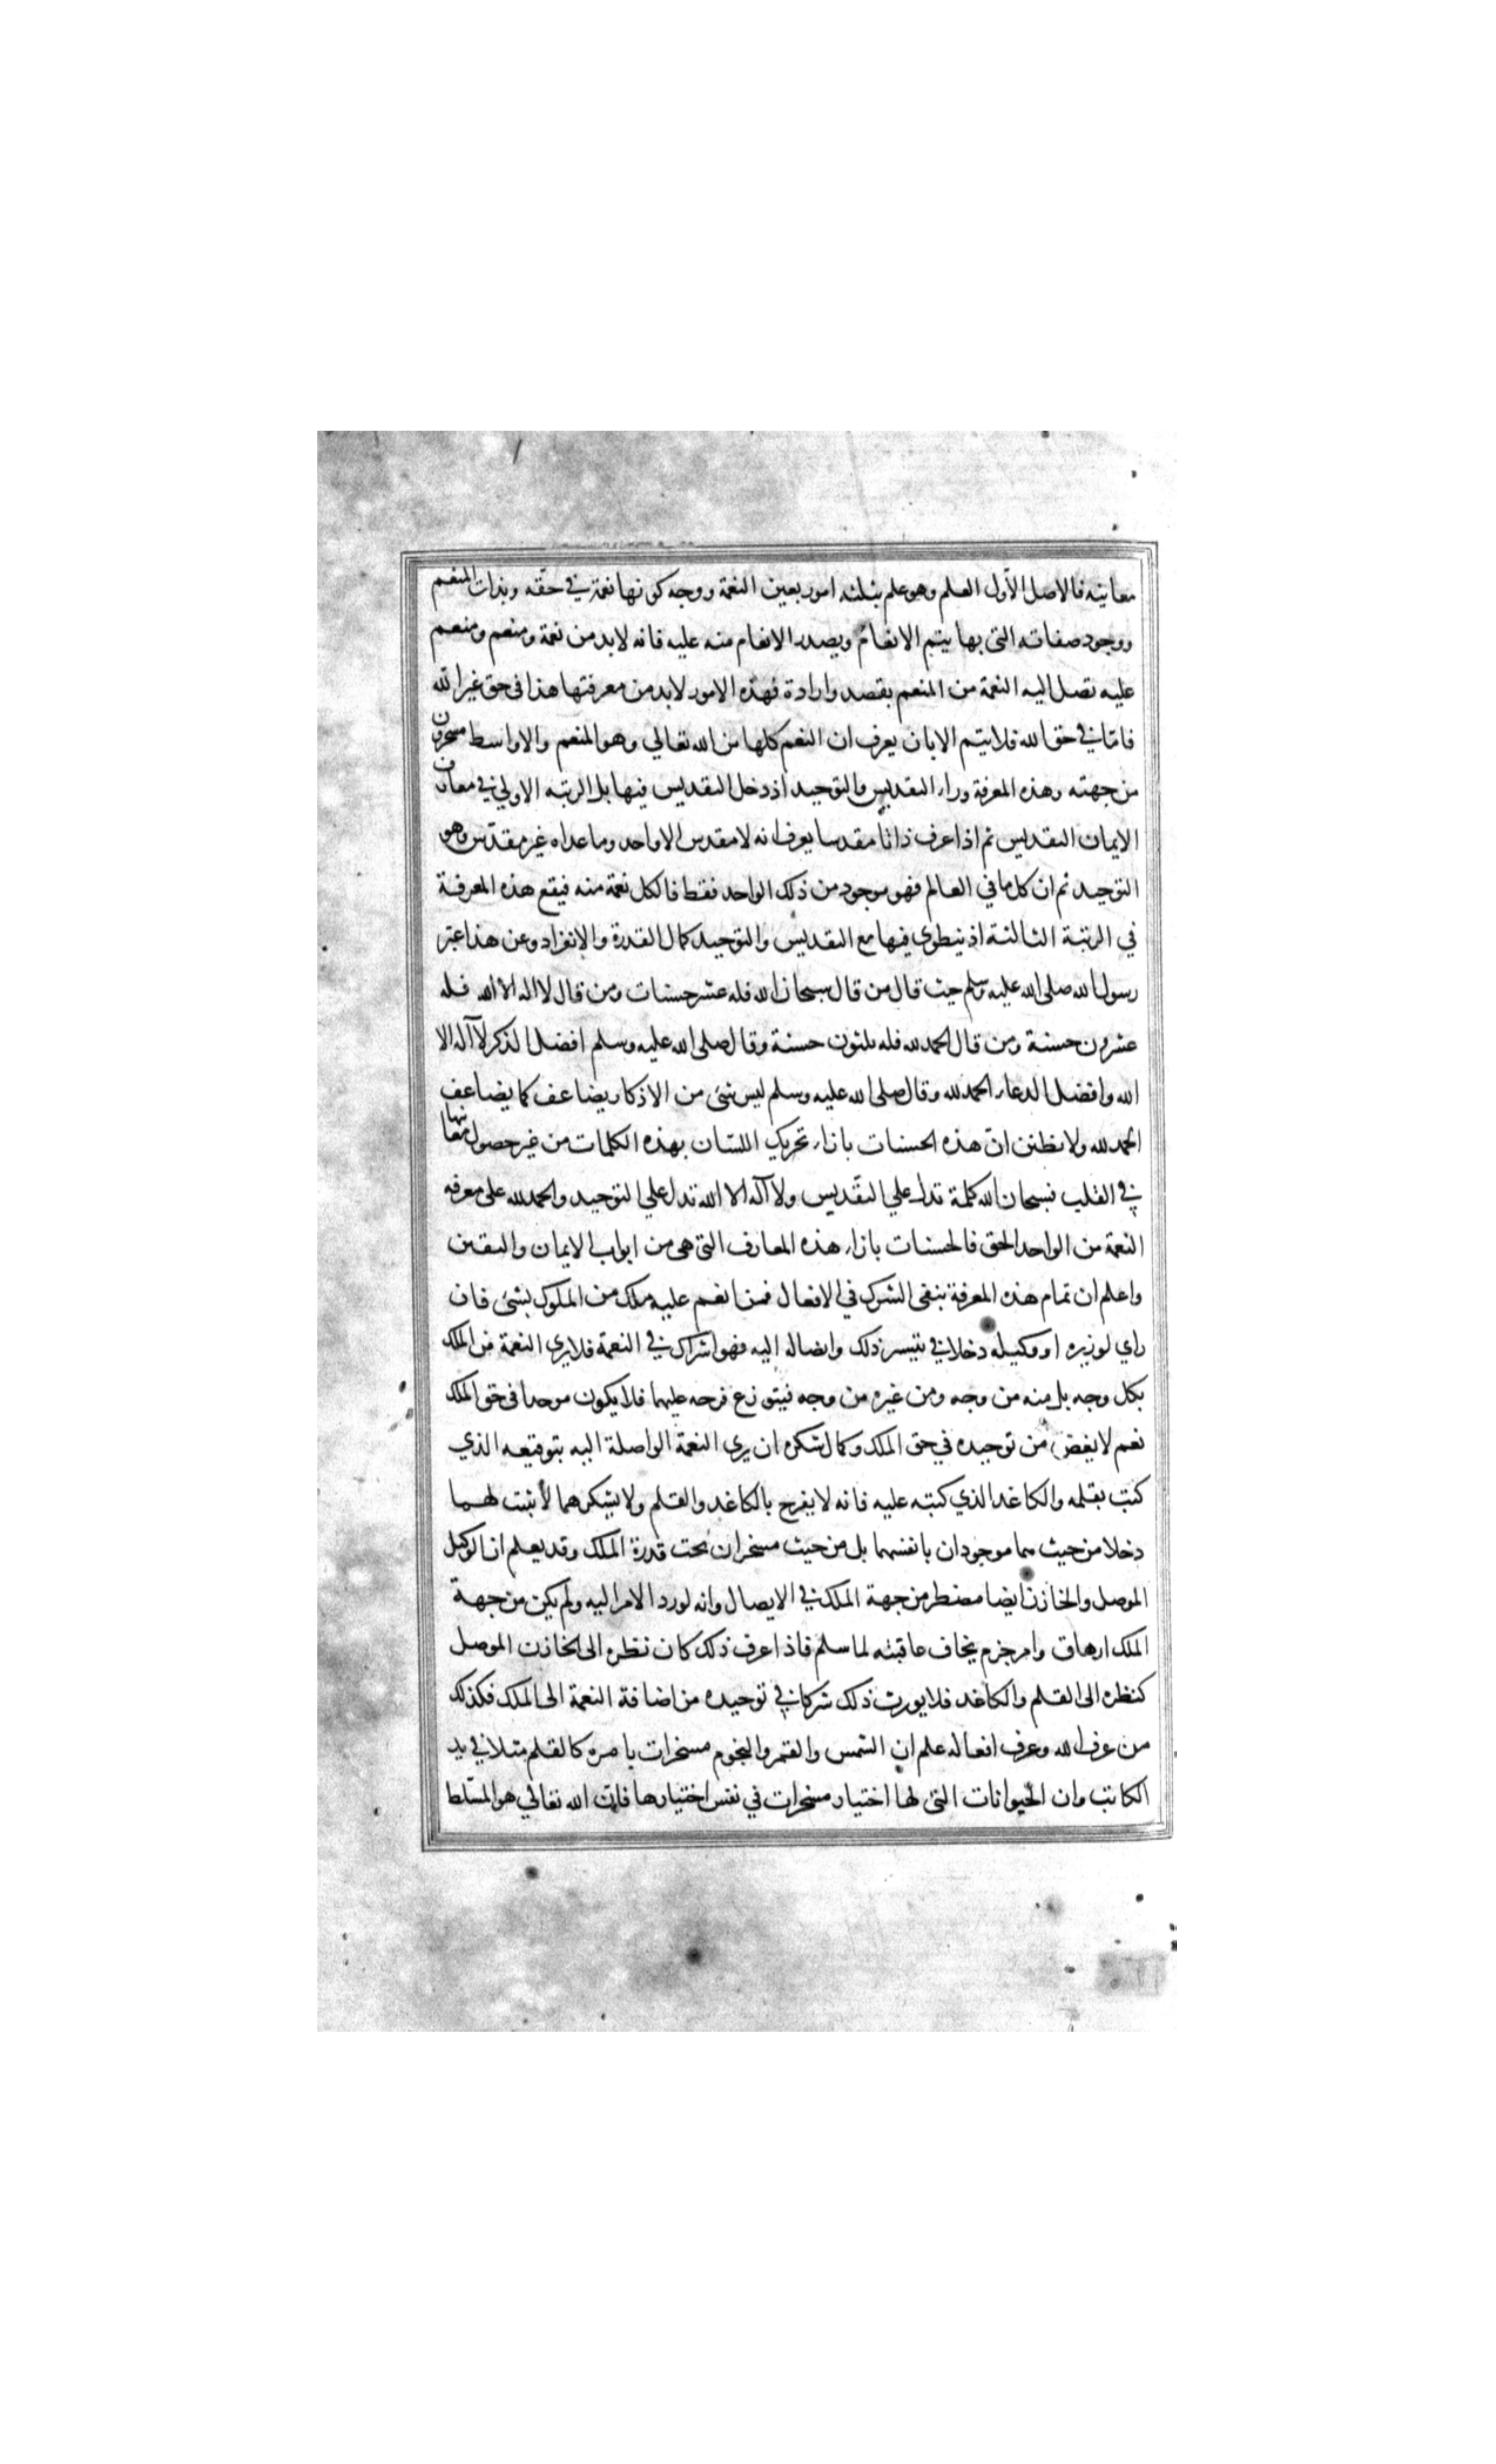 معانيه فالاصل الاول العلم وهو علم بثلثه امور بعين النعمة ووجه كونها نعمة في حقّه وبذات المنعم
ووجود صفاته التى بها يتم الانعام ويصدر الانعام منه عليه فانه لابد من نعمة ومنعم ومنعم
عليه تصل اليه النعمة من المنعم بقصد وارادة فهذه الامور لابد من معرفتها هذا فى حق غير الله
فامّا في حق الله فلا يتم الا بان يعرف ان النعم كلها من الله تعالي وهو المنعم والاواسط مسخرون
من جهته وهذه المعرفة وراء التقديس والتوحيد اذ دخل التقديس فيها بل الرتبه الاولي في معارف
الايمان التقديس ثم اذا عرف ذاتا مقدسا يعرف انه لا مقدس الا واحد وما عداه غير مقدّس وهو
التوحيد ثم ان كل ما في العالم فهو موجود من ذلك الواحد فقط فالكل نعمة منه فيقع هذه المعرفة
في الرتبة الثالثة اذ ينطوى فيها مع التقديس والتوحيد كمال القدرة والانفراد وعن هذا عبّر
رسول الله صلى الله عليه وسلم حيث قال من قال سبحان الله فله عشر حسنات ومن قال لا اله الا الله فله
عشرون حسنة ومن قال الحمد لله فله ثلثون حسنة وقال صلى الله عليه وسلم افضل الذكر لا آله الا
الله وافضل الدعاء الحمد لله وقال صلى الله عليه وسلم ليس شئ من الاذكار يضاعف كما يضاعف
الحمد لله ولا تظنن انّ هذه الحسنات بازاء تحريك اللسان بهذه الكلمات من غير حصول معانيها
في القلب فسبحان الله كلمة تدل علي التقديس ولا آله الا الله تدل علي التوحيد والحمد لله على معرفه
النعمة من الواحد الحق فالحسنات بازاء هذه المعارف التى هى من ابواب الايمان واليقين
واعلم ان تمام هذه المعرفة ينفى الشرك في الافعال فمن انعم عليه ملك من الملوك بشئ فان
راي لوزيره او وكيله دخلا في تيسر ذلك وايصاله اليه فهو اشراك في النعمة فلا يري النعمة من الملك
بكل وجه بل منه من وجه ومن غيره من وجه فيتوزع فرحه عليهما فلا يكون موحدا فى حق الملك
نعم لا يغض من توحيده في حق الملك وكمال شكره ان يرى النعمة الواصلة اليه بتوقيعه الذي
كتب بقلمه والكاغد الذي كتبه عليه فانه لا يفرح بالكاغد والقلم ولا يشكرهما لا ثبت لهما
دخلا من حيث هما موجودان بانفسهما بل من حيث مسخران تحت قدرة الملك وقد يعلم ان الوكيل
الموصل والخازن ايضا مضطر من جهة الملك في الايصال وانه لو رد الامر اليه ولم يكن من جهة
الملك ارهاق وامر جزم يخاف عاقبته لما سلم فاذا عرف ذلك كان نظره الى الخازن الموصل
كنظره الى القلم والكاغد فلا يورث ذلك شركا في توحيده من اضافة النعمة الى الملك فكذلك
من عرف الله وعرف افعاله علم ان الشمس والقمر والنجوم مسخرات بامره كالقلم مثلا في يد
الكاتب وان الحيوانات التى لها اختيار مسخرات في نفس اختيارها فانّ الله تعالي هو المسّلط